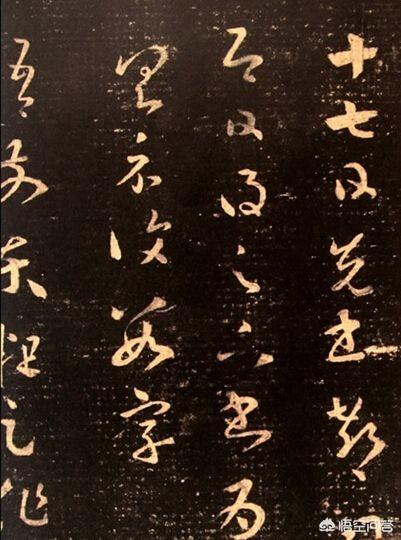 十七日先書郗
即日得足下書為
具示復數字
吾前東粗足作
悟空问答